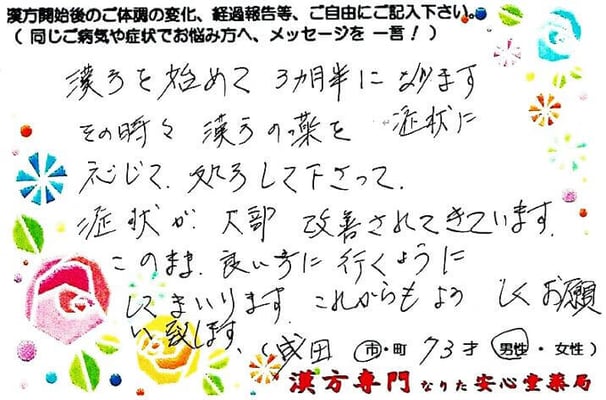 漢方開始後のご体調の変化、経過報告等、ご自由にご記入下さい。
（ 同じご病気や症状でお悩み方へ、メッセージを 一言！）
漢方を始めて 3カ月半になります
その時々 漢方の薬を 症状に
応じて、処方して下さって、
症状が 大部 改善されてきています。
このまま、良い方に 行くように
してまいります これからもよろしくお願
い致します。
（ 成田 市・町 73才 男性・女性）
漢方専門 なりた 安心堂薬局